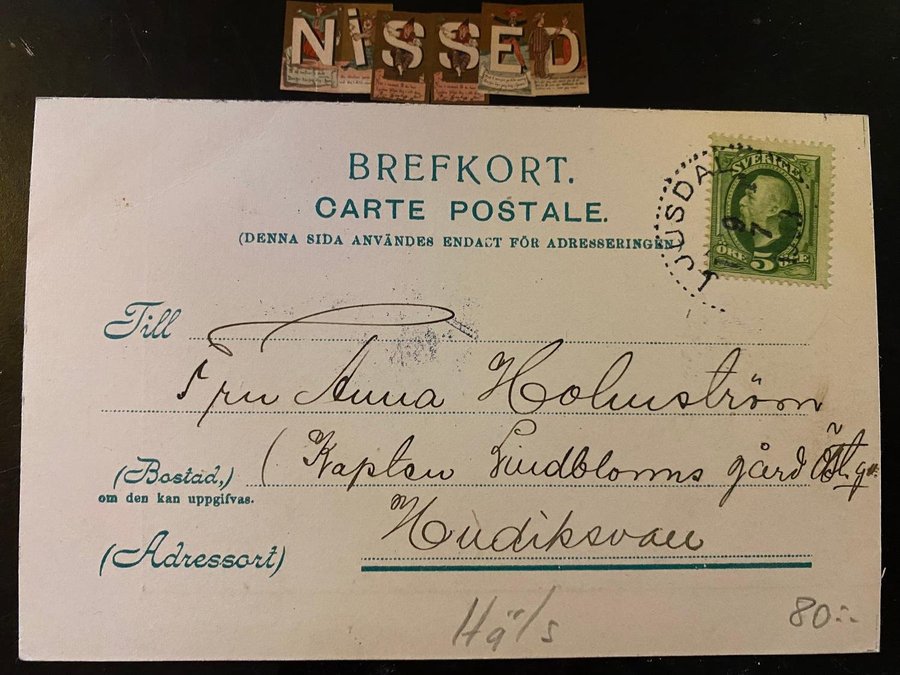 NiSSED
BREFKORT.
CARTE POSTALE.
(DENNA SIDA ANVÄNDES ENDAST FÖR ADRESSERINGEN
SVERIGE
LJUSDAL
9
7
5
ÖRE
Till
Fru Anna Holmström
(Kapten Lindbloms gård
(Bostad,)
om den kan uppgifvas.
Hudiksvall
(Adressort)
Hä/s
80:-